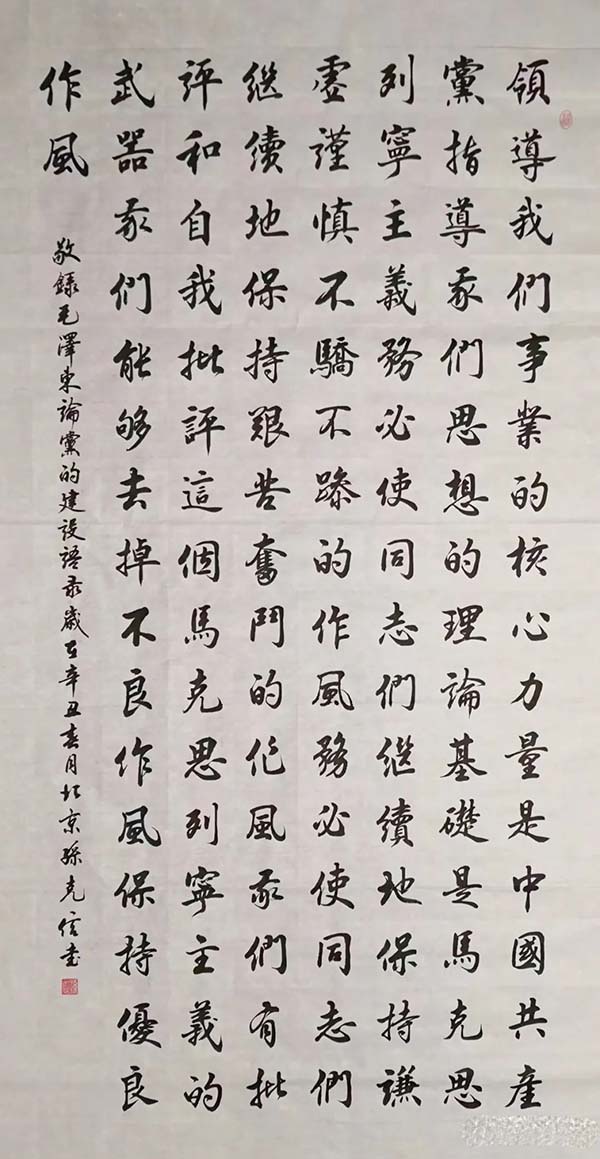 領導我們事業的核心力量是中國共産
黨指導我們思想的理論基礎是馬克思
列寧主義務必使同志們继續地保持謙
虚謹慎不驕不躁的作風務必使同志們
继續地保持艱苦奮鬥的作風我們有批
評和自我批評這個馬克思列寧主義的
武器我們能够去掉不良作風保持優良
作風
敬録毛澤東論黨的建設語录歲在辛丑春月北京孫克信書